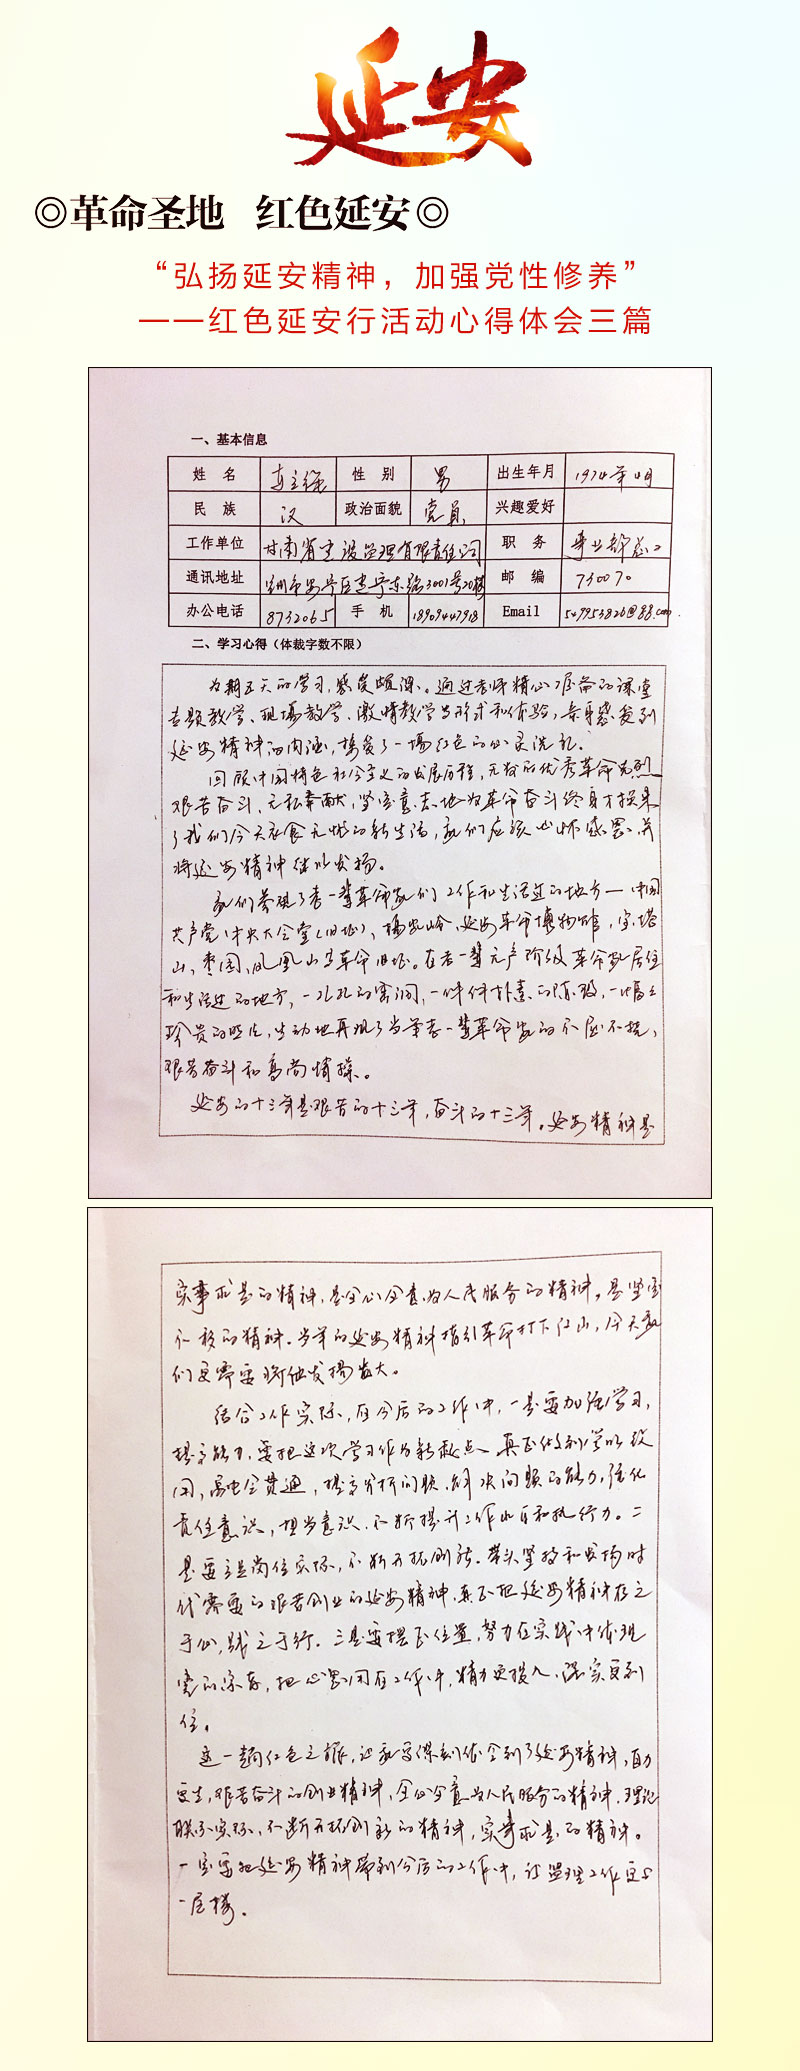 延安
◎革命圣地 红色延安◎
“弘扬延安精神，加强党性修养”
——红色延安行活动心得体会三篇
一、基本信息
姓 名 性 别 男 出生年月 1974年4月
民 族 汉 政治面貌 党员 兴趣爱好
工作单位 甘肃省建设监理有限责任公司 职 务 事业部总工
通讯地址 兰州市安宁区建宁东路3001号20楼 邮 编 730070
办公电话 8732065 手 机 18909447918 Email
二、学习心得（体裁字数不限）
为期五天的学习，感受颇深。通过老师精心准备的课堂
专题教学、现场教学、激情教学等形式和体验，亲身感受到
延安精神的内涵，接受了一场红色的心灵洗礼。
回顾中国特色社会主义的发展历程，无数的优秀革命先烈
艰苦奋斗、无私奉献，坚定意志地为革命奋斗终身才换来
了我们今天衣食无忧的新生活，我们应该心怀感恩，并
将延安精神继以发扬。
我们参观了老一辈革命家们工作和生活过的地方—中国
共产党中央大会堂（旧址）、杨家岭、延安革命博物馆，宝塔
山、枣园、凤凰山等革命旧址。在老一辈无产阶级革命家居住
和生活过的地方，一孔孔的窑洞，一件件朴素的陈设，一幅幅
珍贵的照片，生动地再现了当年老一辈革命家的不屈不挠，
艰苦奋斗和高尚情操。
延安的十三年是艰苦的十三年，奋斗的十三年。延安精神是
实事求是的精神，是全心全意为人民服务的精神，是坚定
不移的精神。当年的延安精神指引革命打下江山，今天我
们更需要将他发扬光大。
结合工作实际，在今后的工作中，一是要加强学习，
提高能力，要把这次学习作为新起点，真正做到学以致
用，融会贯通，提高分析问题、解决问题的能力，强化
责任意识，担当意识，不断提升工作水平和执行力。二
是要立足岗位实际，不断开拓创新。带头坚持和发扬时
代需要的艰苦创业的延安精神，真正把延安精神存之
于心，践之于行。三是要摆正位置，努力在实践中体现
党的宗旨，把心思用在工作中，精力更投入，落实更到
位。
这一趟红色之旅，让我深刻体会到了延安精神，自力
更生，艰苦奋斗的创业精神，全心全意为人民服务的精神，理论
联系实际、不断开拓创新的精神，实事求是的精神。
一定要把延安精神带到今后的工作中，让监理工作更上
一层楼。